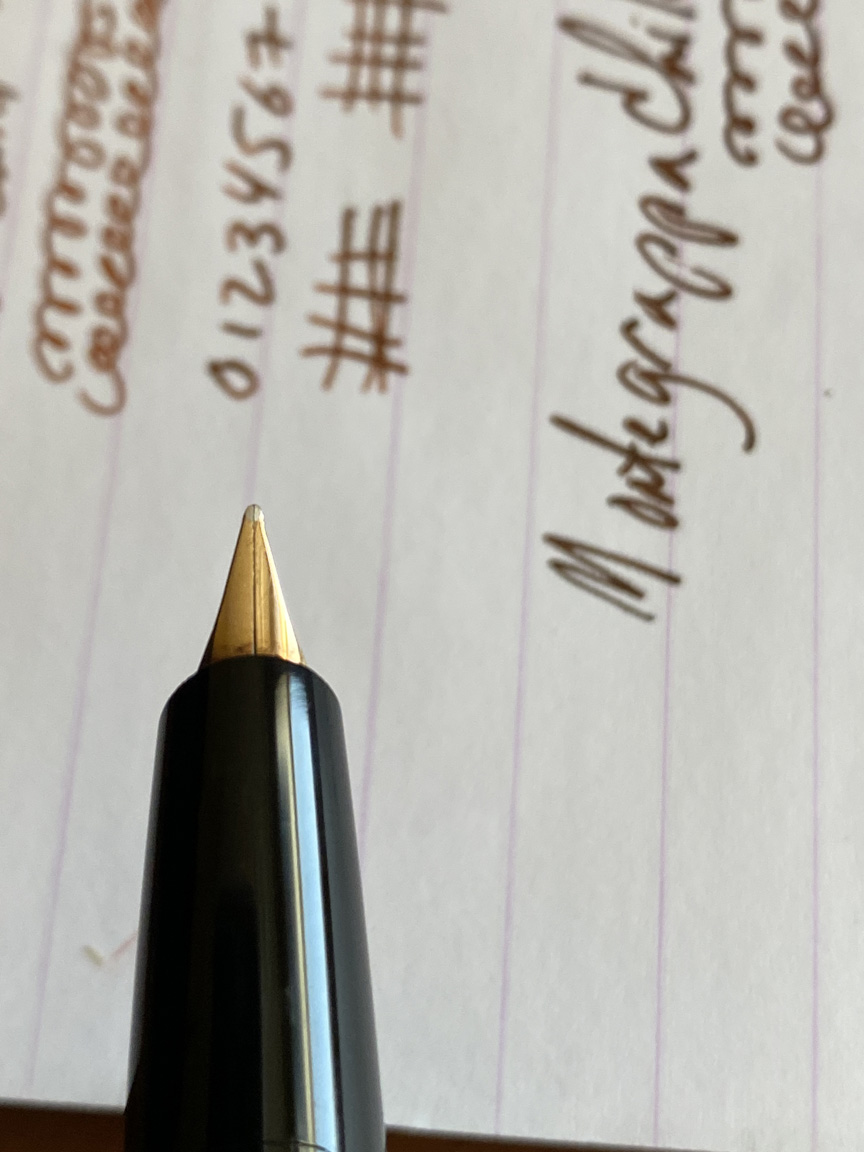 01234567
Montegrappa